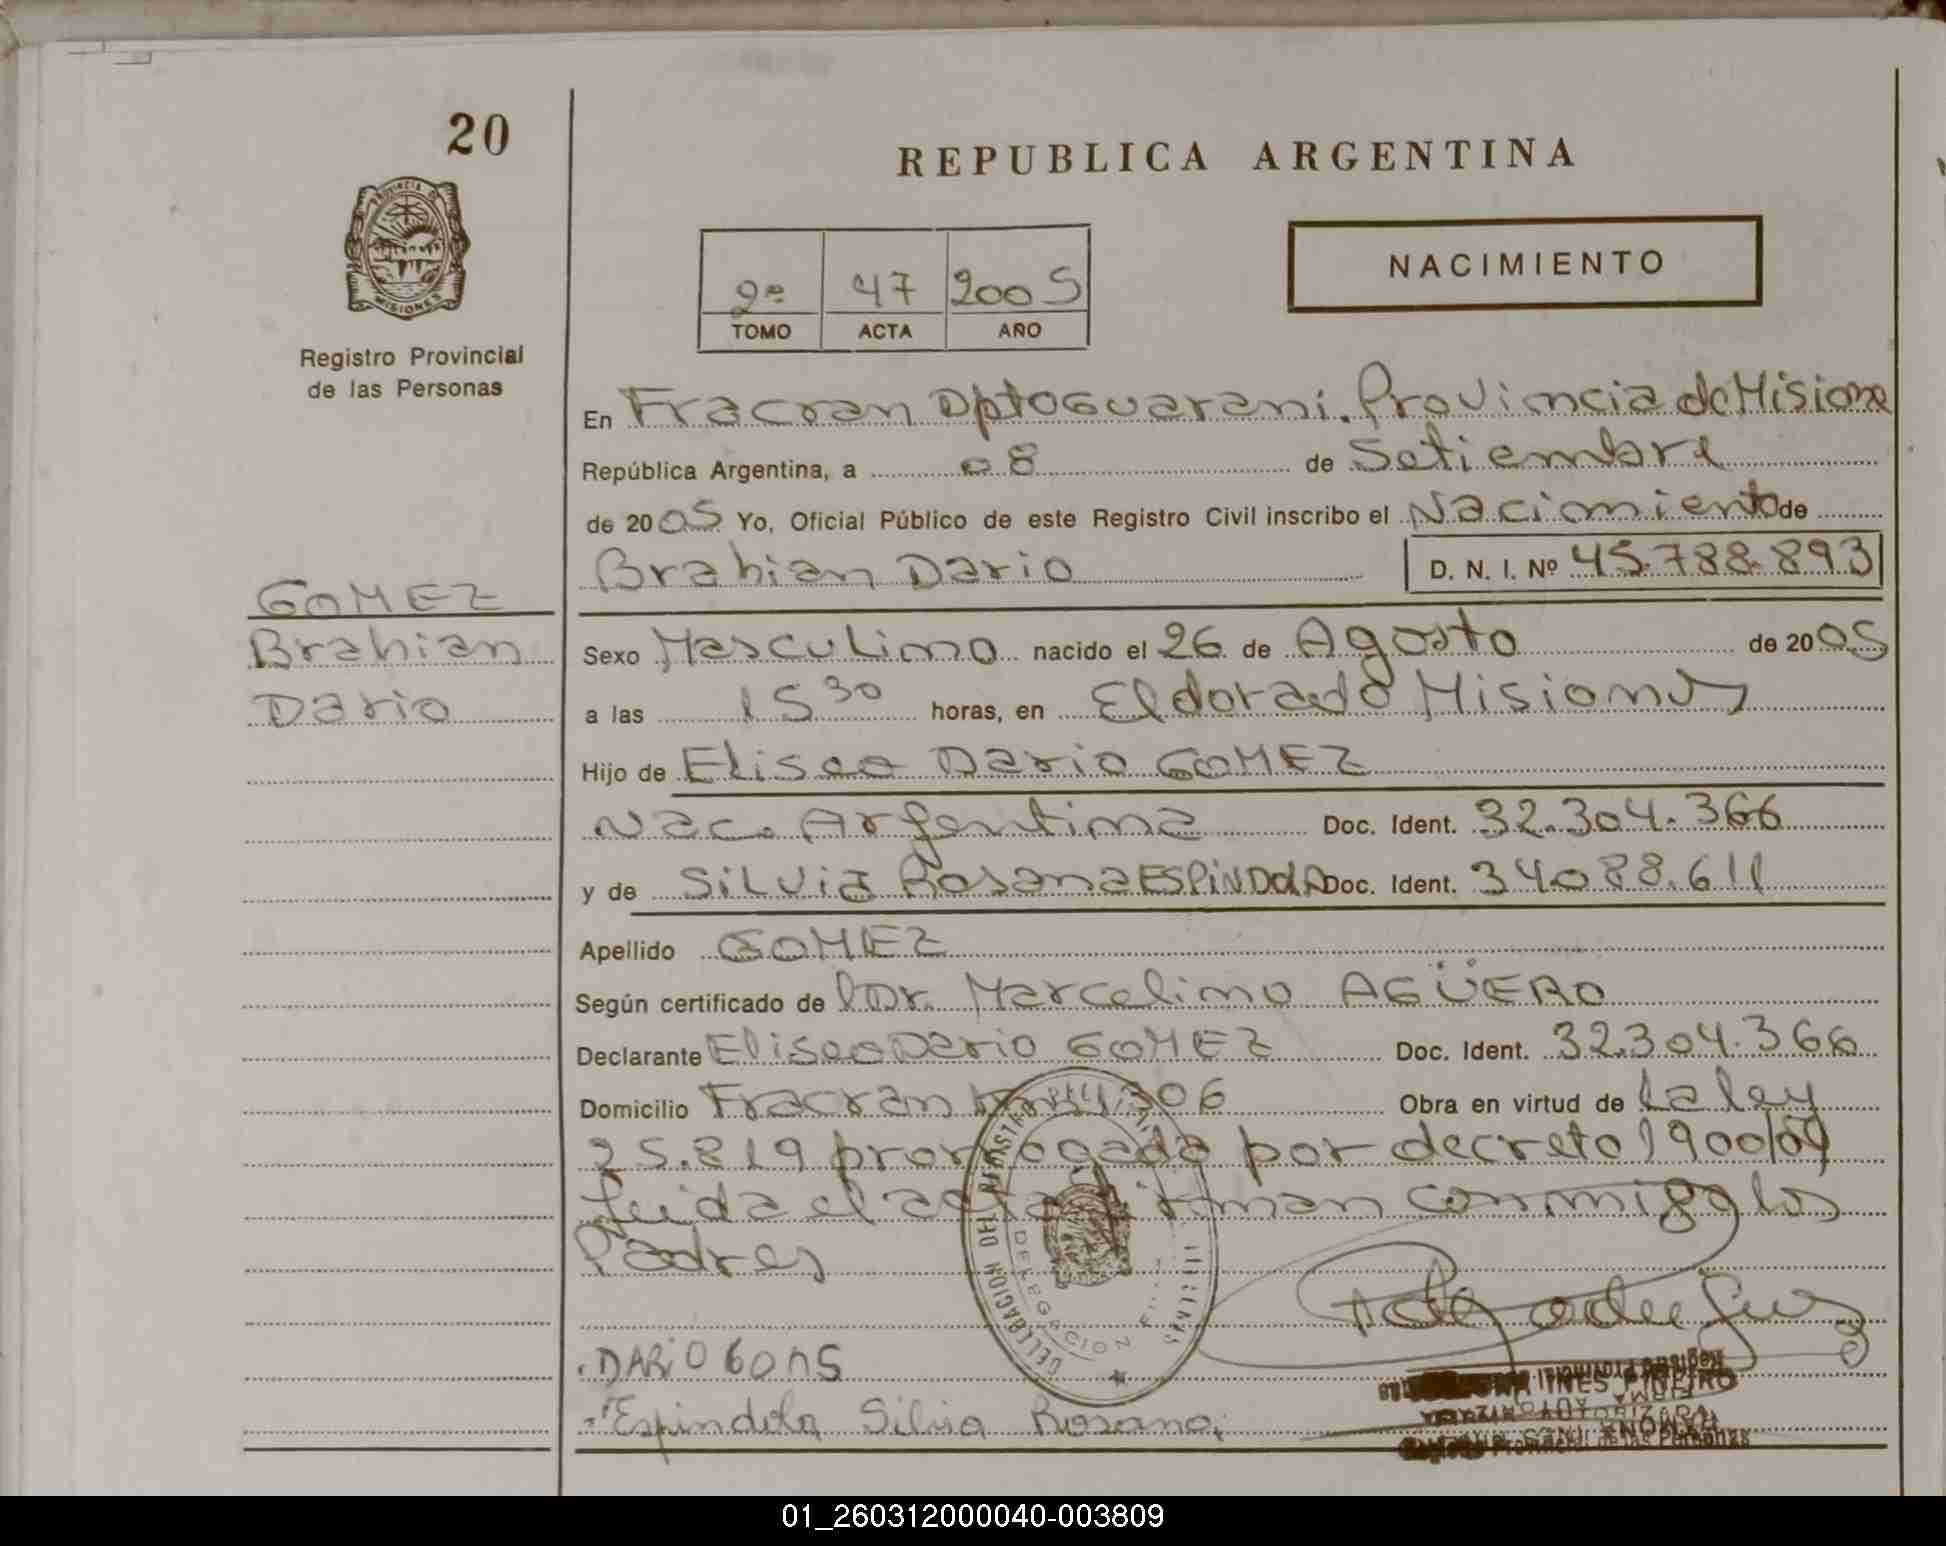 20
REPUBLICA ARGENTINA
PROVINCIA DE
MISIONES
Registro Provincial
de las Personas
2º 47 2005
TOMO ACTA AÑO
NACIMIENTO
En Fracran Dpto Guarani. Provincia de Misione
República Argentina, a 08 de Setiembre
de 2005 Yo, Oficial Público de este Registro Civil inscribo el Nacimiento de
Brahian Dario D. N. I. Nº 45.788.893
GOMEZ
Brahian
Dario
Sexo Masculino nacido el 26 de Agosto de 2005
a las 15 30 horas, en Eldorado Misiones
Hijo de Eliseo Dario GOMEZ
Nac. Argentina Doc. Ident. 32.304.366
y de Silvia Rosana ESPINDOLA Doc. Ident. 34088.611
Apellido GOMEZ
Según certificado de Dr. Marcelino AGÜERO
Declarante Eliseo Dario GOMEZ Doc. Ident. 32.304.366
Domicilio Fracran Obra en virtud de La ley
25.819 prorrogada por decreto 1900/04
Leida el acta firman conmigo los
Padres
DELEGACION DEL REGISTR
DELEGACION
DARIO GOMS
Espindola Silvia Rosana
INES PIÑEIRO
FIRMA AUTORIZADA
Registro Provincial de las Personas
01_260312000040-003809